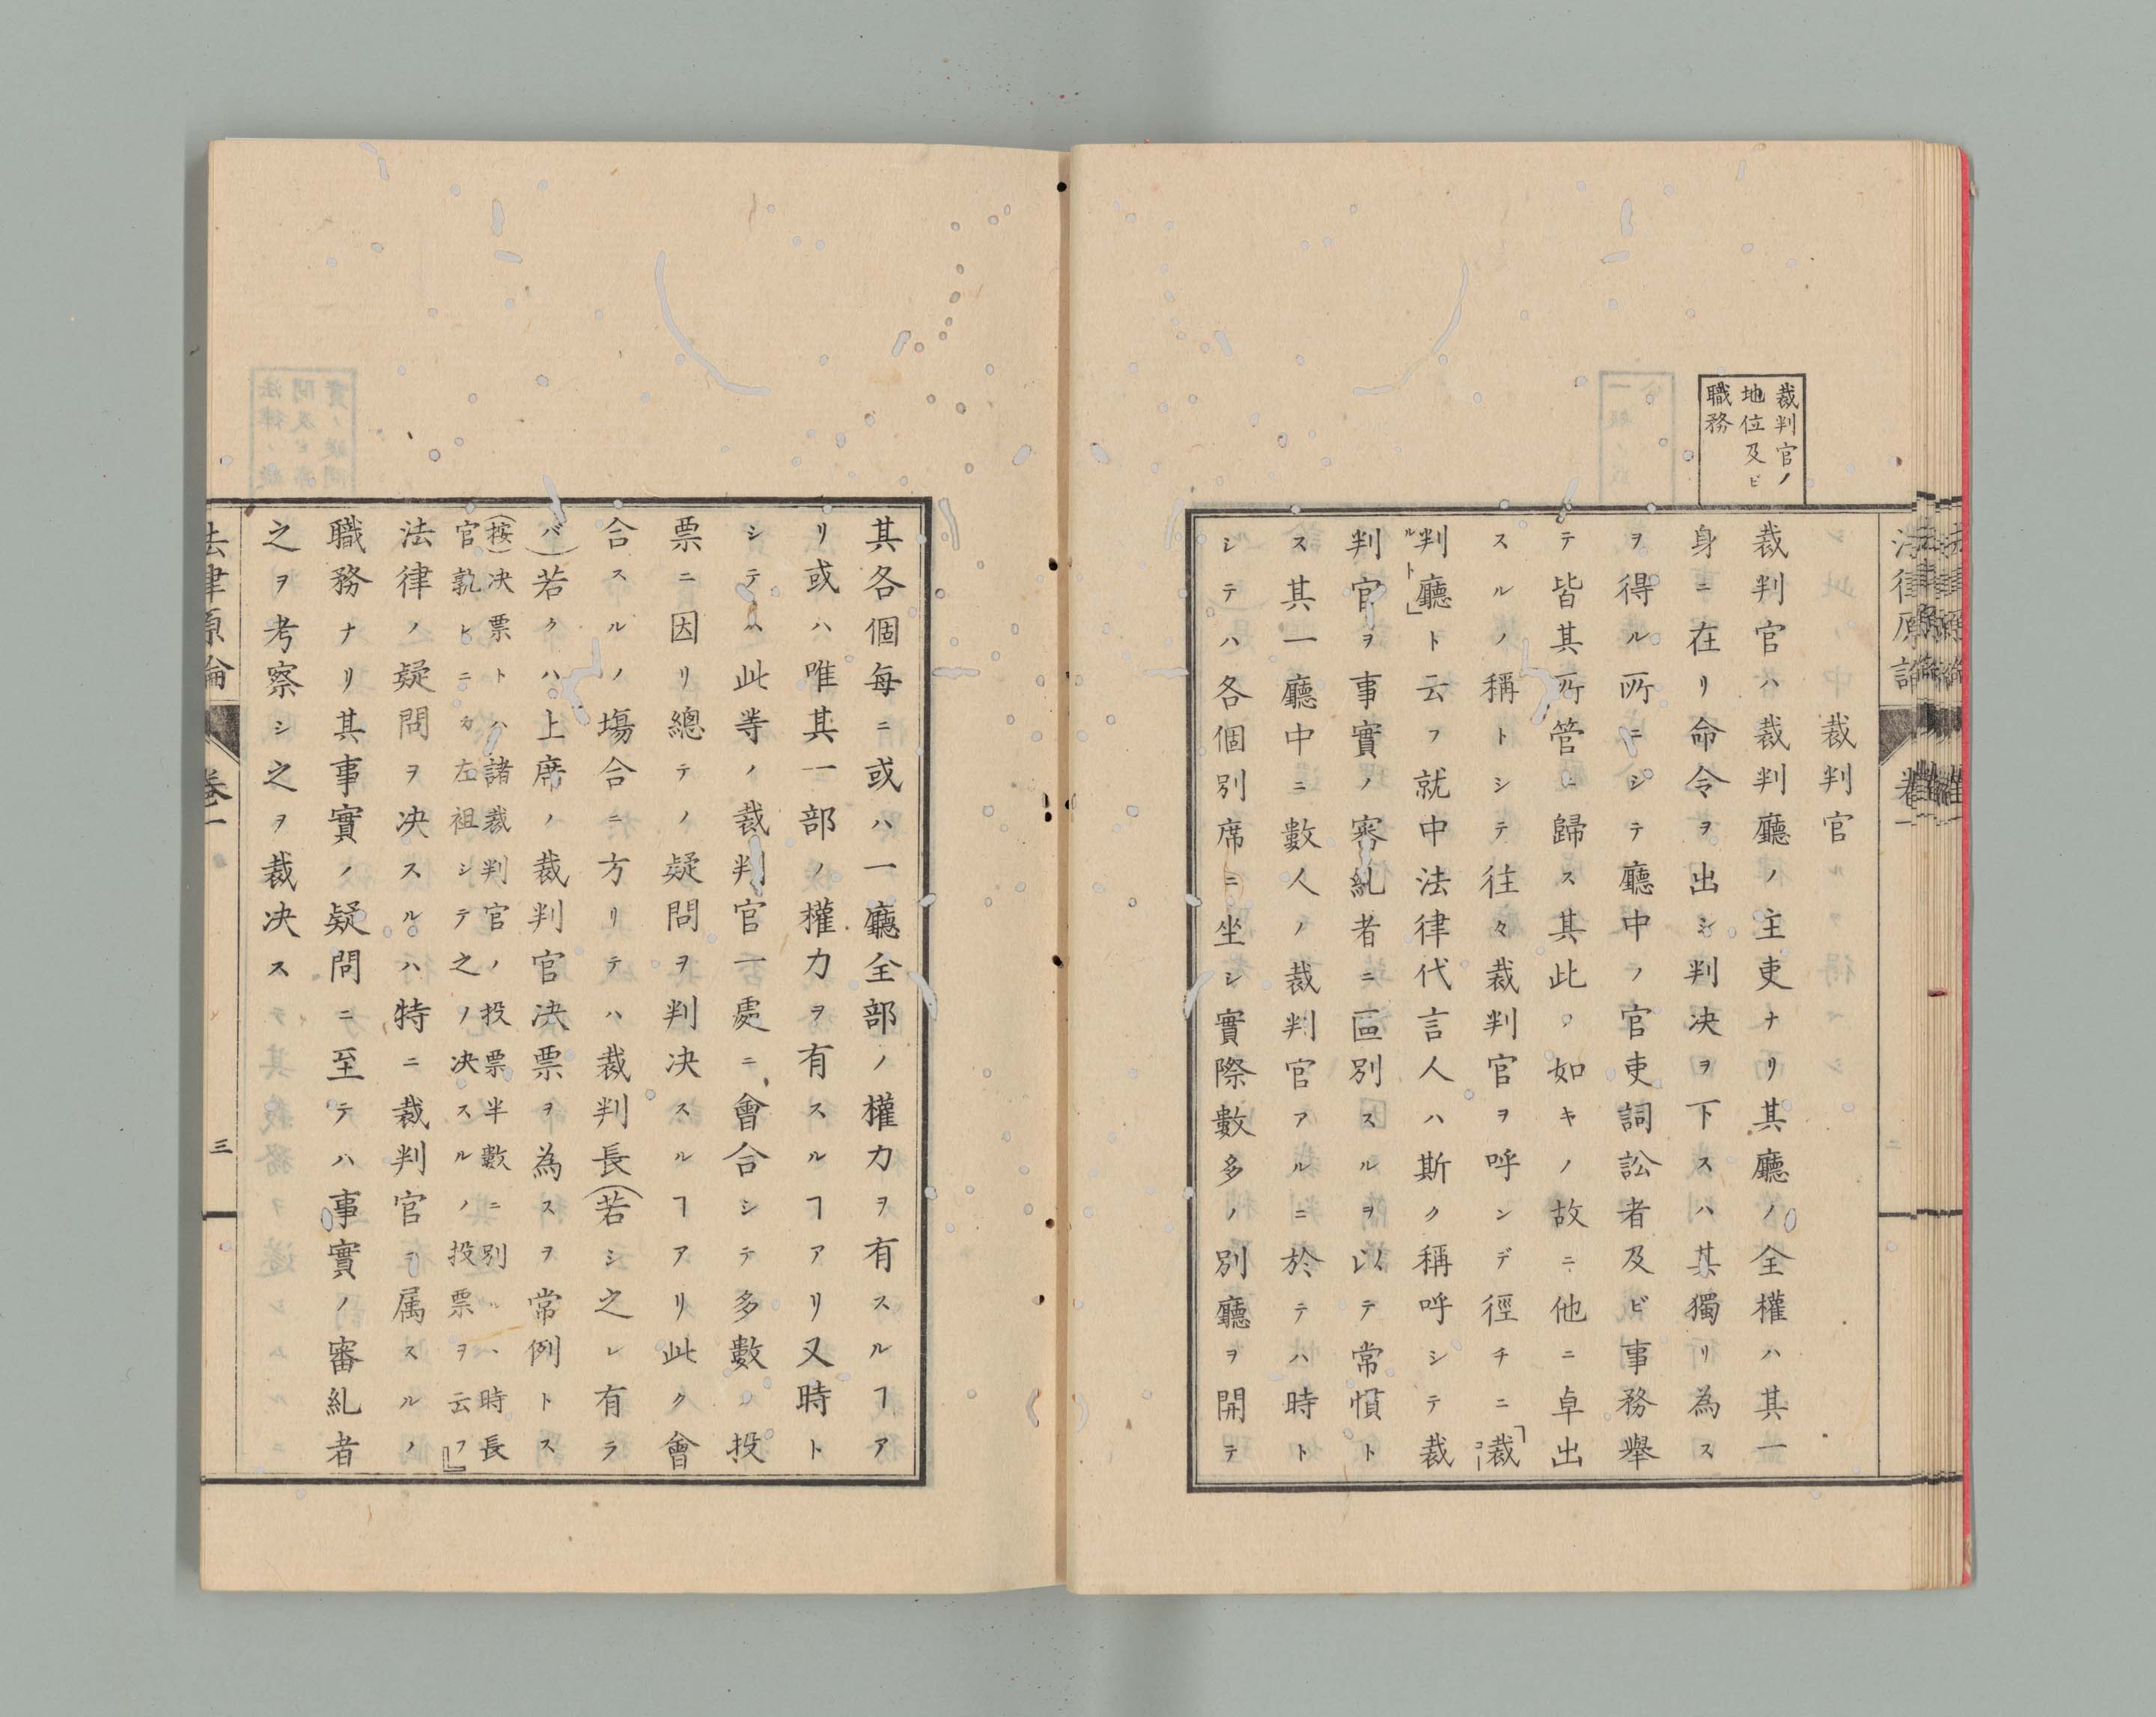 裁判官ノ
地位及ビ
職務
裁判官
裁判官ハ裁判廳ノ主吏ナリ其廳ノ全權ハ其一
身ニ在リ命令ヲ出シ判决ヲ下スハ其獨リ為ス
ヲ得ル所ニシテ廳中ノ官吏詞訟者及ビ事務舉
テ皆其所管ニ歸ス其此ノ如キノ故ニ他ニ卓出
スルノ稱トシテ往々裁判官ヲ呼ンデ徑チニ「裁
判廳」ト云フ就中法律代言人ハ斯ク稱呼シテ裁
コールト
判官ヲ事實ノ審糺者ニ區別スルヲ以テ常慣ト
ス其一廳中ニ數人ノ裁判官アルニ於テハ時ト
シテハ各個別席ニ坐シ實際數多ノ別廳ヲ開テ
其各個每ニ或ハ一廳全部ノ權力ヲ有スルヿア
リ或ハ唯其一部ノ權力ヲ有スルヿアリ又時ト
シテハ此等ノ裁判官一處ニ會合シテ多數ノ投
票ニ因リ總テノ疑問ヲ判决スルヿアリ此ク會
合スルノ塲合ニ方リテハ裁判長(若シ之レ有ラ
バ)若クハ上席ノ裁判官决票ヲ為スヲ常例トス
(按)决票トハ諸裁判官ノ投票半數ニ別ルヽ時長
官孰レニカ左袒シテ之ノ决スルノ投票ヲ云フ」
法律ノ疑問ヲ决スルハ特ニ裁判官ヲ属スルノ
職務ナリ其事實ノ疑問ニ至テハ事實ノ審糺者
之ヲ考察シ之ヲ裁决ス
法律原論
卷一
三